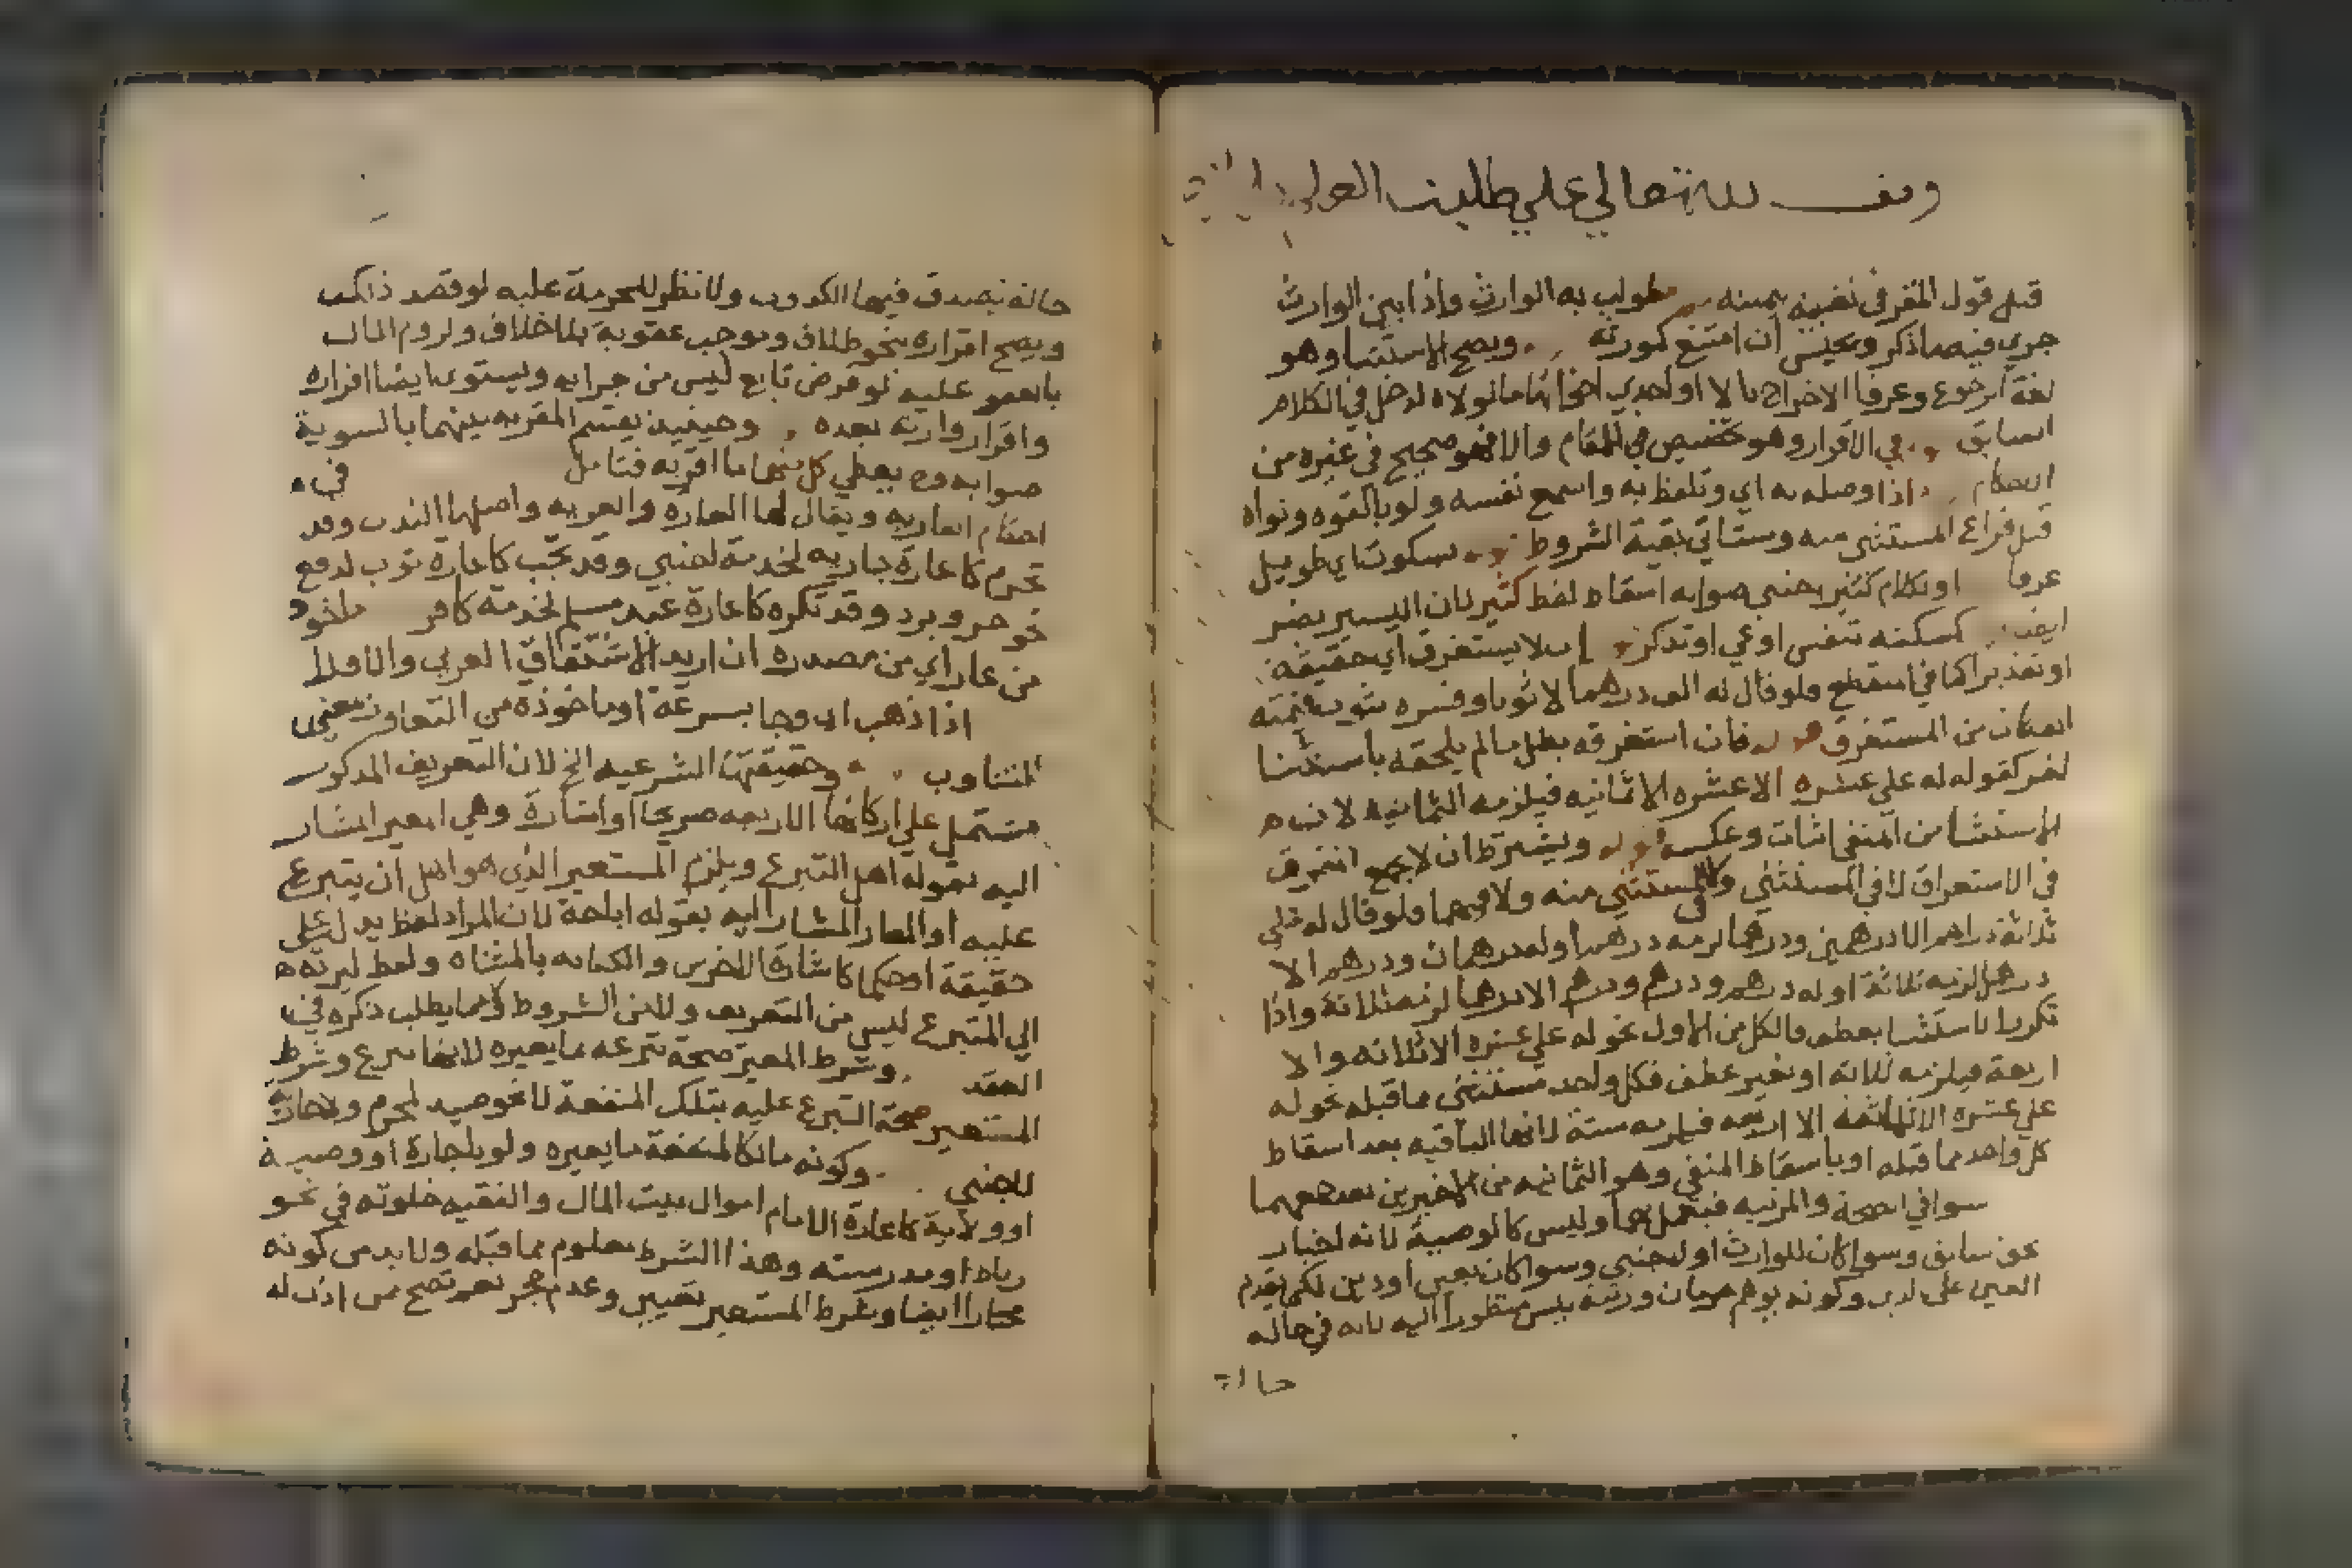 وقف لله تعالى علي طلبت العلم
قبل قول المقر في نفيه بيمينه وطولب به الوارث واذا بين الوارث
جري فيه ما ذكر وتعيين ان امتنع كمورثه ويصح الاستثنا وهو
لغة الرجوع وعرفا الاخراج بالا او احدي اخواتها ما لولاه لدخل في الكلام
السابق في الاقرار وهو تخصيص في المقام والا فهو صحيح في غيره من
الاحكام اذا وصله به اي وتلفظ به واسمع نفسه ولو بالقوه ونواه
قبل فراغ المستثني منه وستاتي بقية الشروط بسكوت اي طويل
عرفا او كلام كثير اجنبي صوابه اسقاط لفظ كثير لان اليسير يضر
ايضا كسكته تنفس او عي او تذكر لا يستغرق اي حقيقة
او تقديرا كما في المنقطع ولو قال له الف درهما لا ثوبا وفسره بثوب قيمته
من المستغرق فان استغرقه بطل ما لم يلحقه باستثنا
اخر كقوله له علي عشره الا عشره الا ثمانيه فيلزمه الثمانية لان
الاستثنا من النفي اثبات وعكسه ويشترط ان لا يجمع المفرق
في الاستغراق لا في المستثني ولا في المستثني منه ولا فيهما ولو قال له علي
ثلاثة دراهم الا درهمين ودرهما لزمه درهم او له درهمان ودرهم الا
درهما لزمه ثلاثة او له درهم ودرهم ودرهم الا درهما لزمه ثلاثة واذا
تكرر الاستثنا بعطف فالكل من الاول نحو له علي عشره الا ثلاثه والا
اربعة فيلزمه ثلاثه او بغير عطف فكل واحد مستثني مما قبله نحو له
علي عشره الا ثلاثة الا اربعه فيلزمه ستة لانها الباقيه بعد اسقاط
كل واحد مما قبله او باسقاط المنفي وهو الثمانيه من الاخيرين بعد جمعهما
سوا في الصحة والمرض فيعمل بهما وليس كالوصية لانه اخبار
عن سابق وسوا كان للوارث او لاجنبي وسوا كان بعين او دين لكن يقدم
العين علي الدين وكونه يوهم حرمان ورثة ليس منظورا اليه لانه في حاله
حالة
حالة يصدق فيها الكذوب ولا نظر للحرمة عليه لو قصد ذلك
ويصح اقراره بنحو طلاق وموجب عقوبة بلا خلاف ولزوم المال
بالعفو عليه لو فرض تابع ليس من جرايه ويستوي ايضا اقراره
واقرار وارثه بعده وحينيذ يقسم المقر به بينهما بالسوية
صوابه ويعطي كل منهما ما اقر به فتامل في
احكام العاريه ويقال لها العارة والعريه واصلها الندب وقد
تحرم كاعارة جاريه لخدمة اجنبي وقد تجب كاعارة ثوب لدفع
نحو حر وبرد وقد تكره كاعارة عبد مسلم لخدمة كافر ماخوذ
من عار اي من مصدره ان اريد الاشتقاق العربي والا فلا
اذا ذهب اي وجا بسرعة او ماخوذة من التعاور بمعني
التناوب وحقيقتها الشرعيه الخ لان التعريف المذكور
مشتمل علي اركانها الاربعه صريحا او اشارة وهي المعير المشار
اليه بقوله اهل التبرع ويلزم المستعير الذي هو اهل ان يتبرع
عليه او المعار المشار اليه بقوله اباحة لان المراد لفظ يدل علي
حقيقة او حكما كاشارة الاخرس والكتابه بالمثناه ولفظ ليرده
الي المتبرع ليس من التعريف ولا من الشروط وانما يطلب ذكره في
العقد وشرط المعير صحة تبرعه بما يعيره لانها تبرع وشرط
المستعير صحة التبرع عليه بتلك المنفعة لا نحو صيد لمحرم
لاجنبي وكونه مالكا لمنفعة ما يعيره ولو باجارة او وصية
او ولاية كاعارة الامام اموال بيت المال والفقيه خلوته في نحو
رباط او مدرسته وهذا الشرط معلوم مما قبله ولا بد من كونه
مختارا ايضا وشرط المستعير تعيين وعدم حجر نعم تصح من اذن له